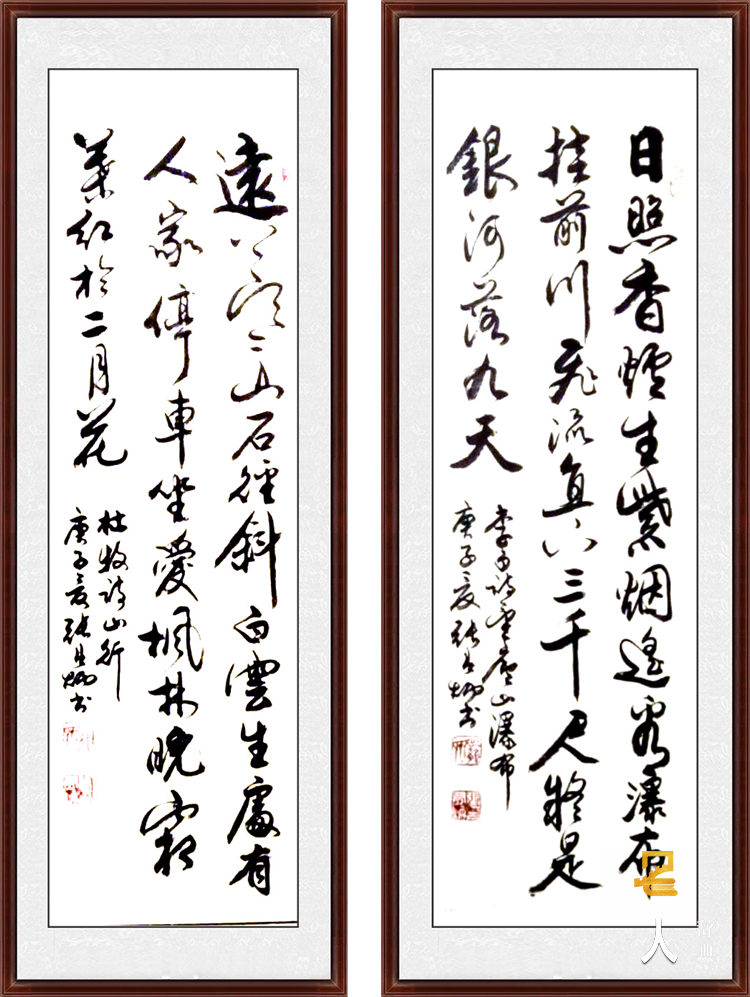 日照香爐生紫烟遥看瀑布
挂前川飛流直下三千尺疑是
銀河落九天
李白诗望廬山瀑布
庚子夏张炳书
遠上寒山石徑斜白雲生處有
人家停車坐愛楓林晚霜
葉紅於二月花
杜牧诗山行
庚子夏张炳书
人